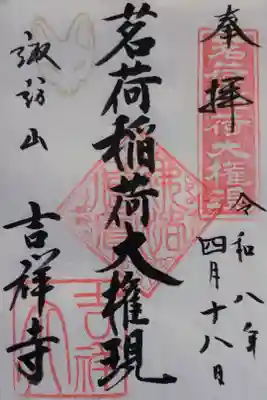 奉拝
茗荷稲荷大権現
令和八年
四月十八日
茗荷稲荷大権現
諏訪山
吉祥寺
吉祥